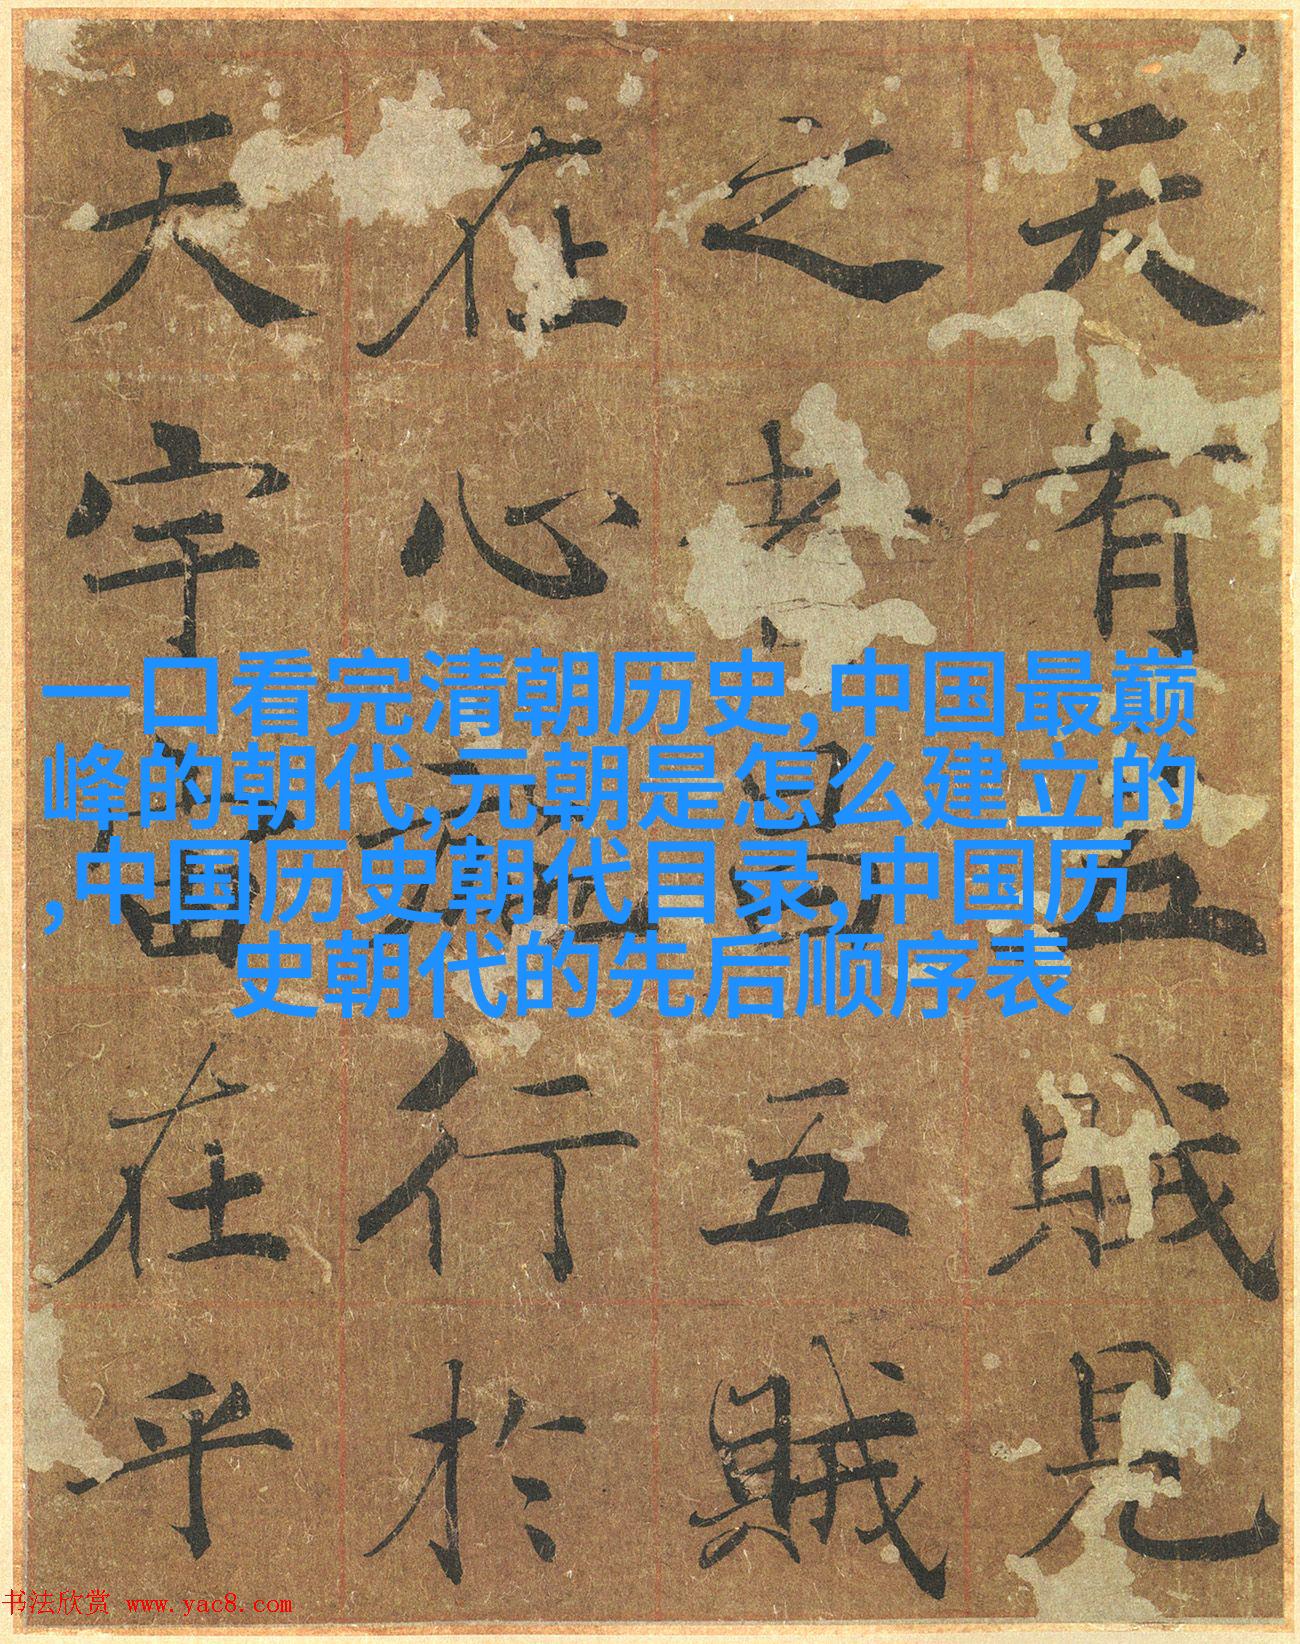 天有五賊見
之者昌五賊
在心施行於
天宇宙在乎
一口看完清朝历史,中国最巅
峰的朝代,元朝是怎么建立的
,中国历史朝代目录,中国历
史朝代的先后顺序表
书法欣赏 www.yac8.com